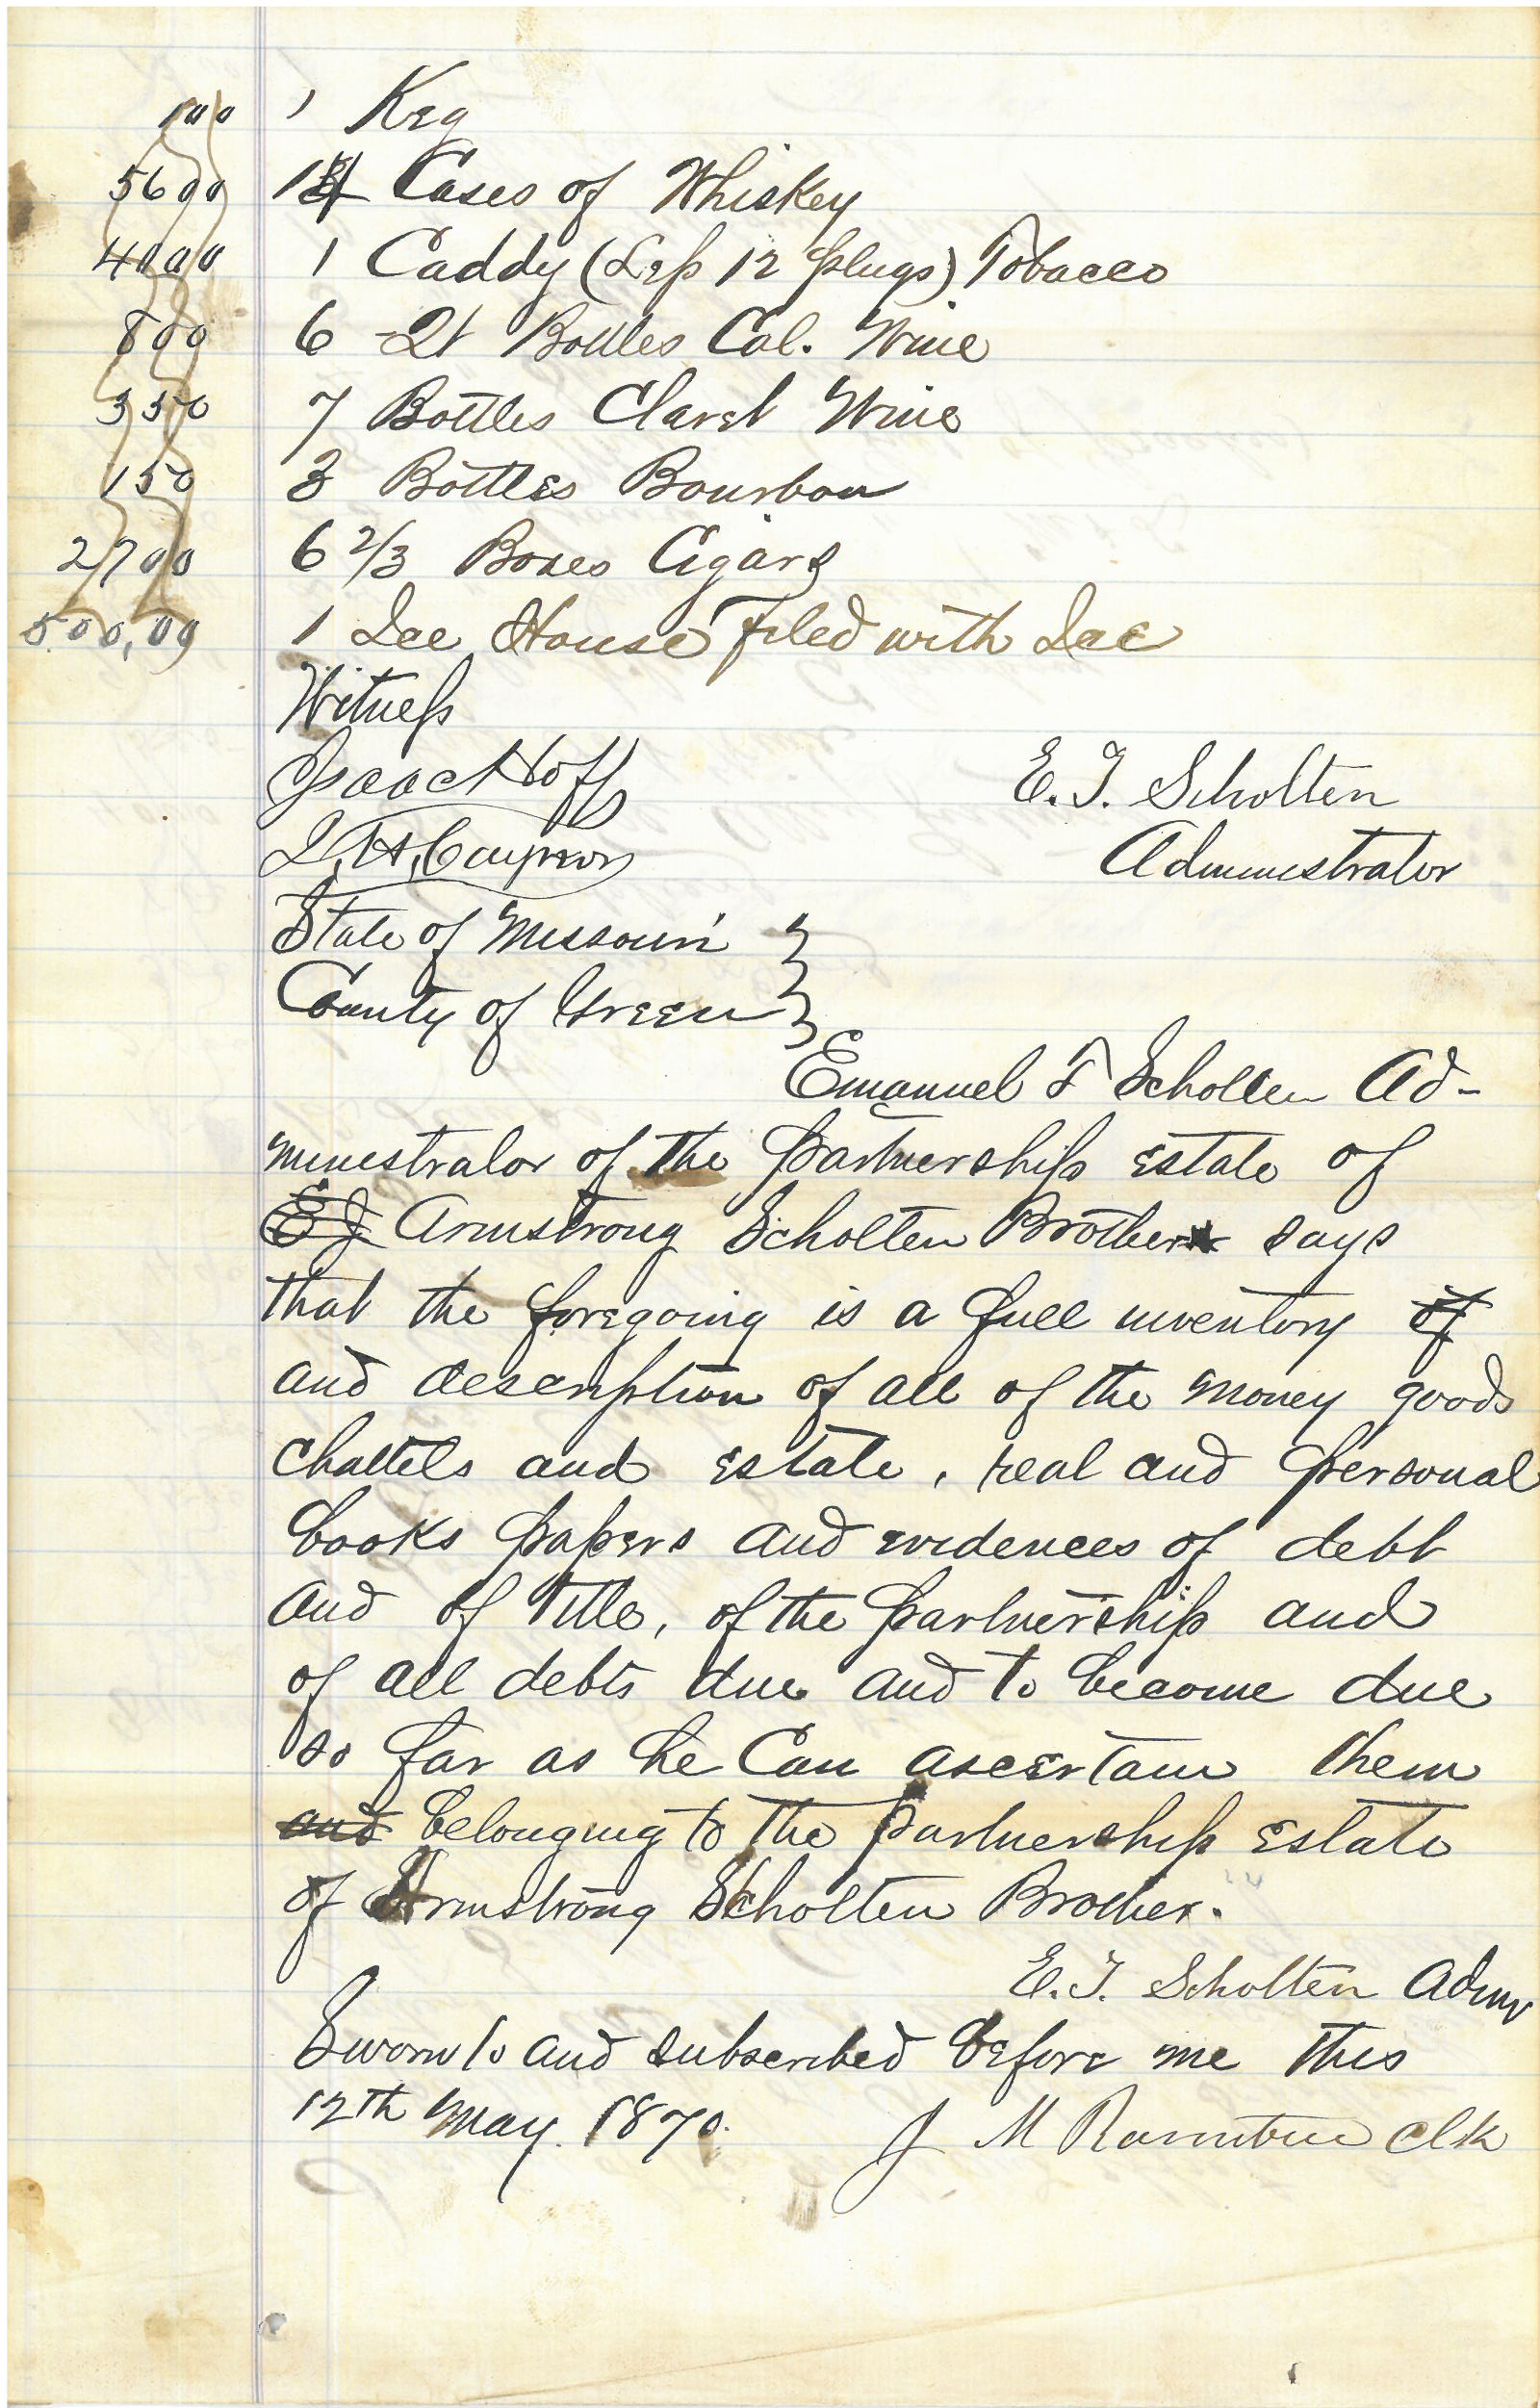 100 1 Keg
5600 14 Cases of Whiskey
4000 1 Caddy (Less 12 plugs) Tobacco
800 6 Qt Bottles Cal. Wine
350 7 Bottles Claret Wine
150 3 Bottles Bourbon
2700 6 2/3 Boxes Cigars
500,00 1 Ice House filed with Ice
Witness
Isaac Hoff
E. T. Scholten
Administrator
State of Missouri }
County of Green }
Emanuel T Scholten Ad-
ministrator of the partnership estate of
E J Armstrong Scholten Brother says
that the foregoing is a full inventory of
and description of all of the money goods
chattels and estate, real and personal
books papers and evidences of debt
and of title, of the partnership and
of all debts due and to become due
so far as he can ascertain them
and belonging to the partnership estate
of Armstrong Scholten Brother.
E. T. Scholten Admr
Sworn to and subscribed before me this
12th May. 1870.
J M Rountree Clk